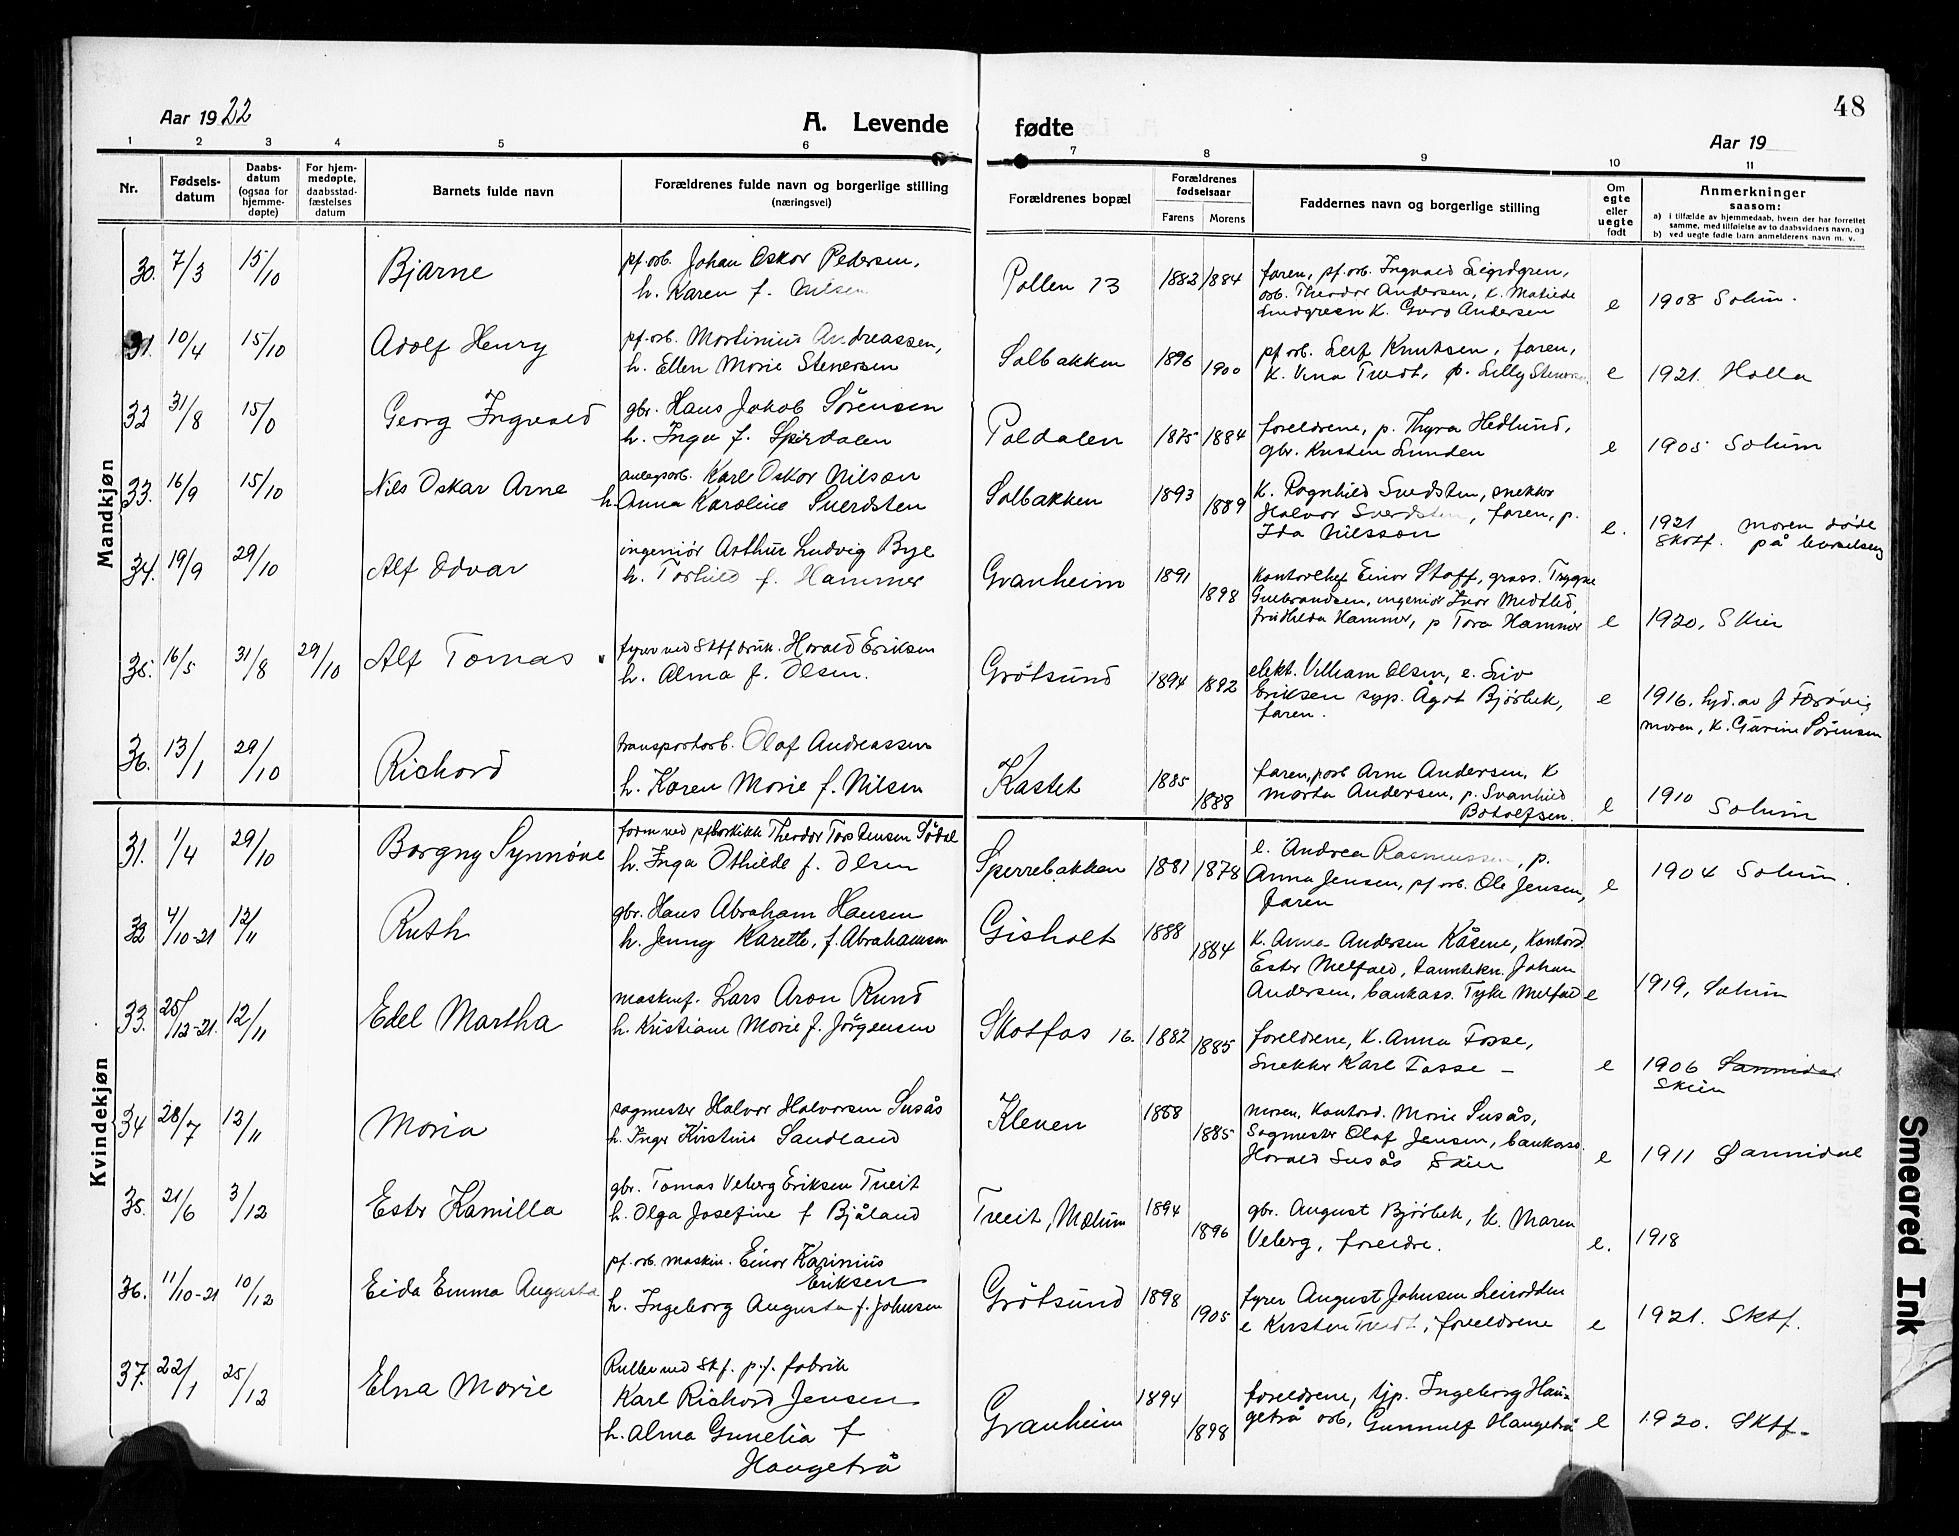 48
Aar 1922
A. Levende fødte
Aar 19
1 2 3 4 5 6 7 8 9 10 11
Nr.
Fødsels-
datum
Daabs-
datum
(ogsaa for
hjemme-
døpte)
For hjem-
medøpte,
daabsstad-
fæstelses
datum
Barnets fulde navn
Forældrenes fulde navn og borgerlige stilling
(næringsvei)
Forældrenes bopæl
Forældrenes
fødselsaar
Farens Morens
Faddernes navn og borgerlige stilling
Om
egte
eller
uegte
født
Anmerkninger
saasom:
a) i tilfælde av hjemmedaab, hvem der har forrettet
samme, med tilføielse av to daabsvidners navn, og
b) ved uegte fødte barn anmelderens navn m. v.
Mandkjøn
30. 7/3 15/10 Bjarne
pf. arb. Johan Oskar Pedersen,
h. Karen f. Nilsen
Pollen 73 1883 1884
faren, pf. arb. Ingvald
arb. Theodor Andersen, k. Matilde
k. Guro Andersen
e 1908 Solum.
31. 10/4 15/10 Adolf Henry
pf. arb. Martinius Andreassen,
h. Ellen Marie Stenersen
Solbakken 1896 1900
pf arb. Leif Knutsen, faren,
k. Vina Tvedt, p. Lilly
e 1921. Holla
32 31/8 15/0 Georg Ingvald
gbr. Hans Jakob Sørensen
h. Inga f. Spirdalen
Poldalen 1875 1884
foreldrene, p. Thyra Hedlund,
gbr. Kristen Lunden
e 1905 Solum
33. 16/9 15/10 Nils Oskar Arne
anlegsarb. Karl Oskar Nilson
h. Anna Karoline Sverdsten
Solbakken 1893 1889
k. Ragnhild Sverdsten, snekker
Halvor Sverdsten, faren, p.
Ida Nilsson
e. 1921 moren døde
Skotf. på
34. 19/9 29/10 Alf Odvar
ingeniør Arthur Ludvig Bye
h. Torhild f. Hammer
Granheim 1891 1898
Kontorchef Einar Staff, Trygve
Gulbrandsen, ingeniør Ivar
Hammer, p Tora Hammer
e 1920, Skien
35. 16/5 31/8 29/10 Alf Tomas
fyrer ved Harald Eriksen
h. Alma f. Olsen.
Grøtsund 1894 1892
elekt. Villiam Olsen, e. Siv
Eriksen syp. Ågot Bjørbek,
faren.
e 1916. hjd. av J Færøvig
moren, k. Gurine Sørensen
36. 13/1 29/10 Richard
transportarb. Olaf Andreassen
h. Karen Marie f. Nilsen
Kastet 1885 1888
faren, arb Arne Andersen, k
Marta Andersen, p. Svanhild
Botolfsen.
e 1910 Solum
Kvindekjøn
31. 1/4 29/10 Borgny Synnøve
form ved Theodor Torstensen Sødal
h. Inga Othilde f. Olsen
Sperrebakken 1881 1878
e. Andrea Rasmussen, p.
Anna Jensen, pf arb. Ole Jensen,
faren
e 1904 Solum.
32 4/10-21 12/11 Ruth
gbr. Hans Abraham Hansen
h. Jenny Karette, f. Abrahamsen
Gisholt 1888 1884
k. Anna Andersen Kåsene, kontord.
Ester Melfald, tanntekn. Johan
Andersen, bankass. Tyke Melfald
e 1919, Solum
33. 25/12-21. 12/11 Edel Martha
maskinf. Lars Aron Rund
h. Kristiane Marie f. Jørgensen
Skotfos 16. 1882 1885
foreldrene, k. Anna Fosse,
Snekker Karl Fosse -
e 1906 Sannidal
Skien
34 28/7 12/11 Maria
sagmester Halvor Halvorsen Susås
h. Inger Kirstine Sandland
Kleven 1888 1885
moren, kontord. Marie Susås,
Sagmester Olaf Jensen, bankass.
Harald Susås Skien
e 1911 Sannidal
35. 21/6 3/12 Ester Kamilla
gbr. Tomas Veberg Eriksen Tveit
h. Olga Josefine f Bjåland
Tveit, Melum 1894 1896
gbr. August Bjørbek, k. Maren
Veberg, foreldre.
e. 1918
36. 11/10-21 10/12 Eida Emma Augusta
pf. arb. maskin. Einar Karinius
Eriksen
h. Ingeborg Augusta f. Johnsen
Grøtsund 1898 1905
fyrer August Johnsen Leirodden
e Kirsten Tvedt, foreldrene
e 1921. Sktf.
37. 22/1 25/12 Elna Marie
Ruller ved Sk f. p.f. fabrik
Karl Richard Jensen
h. Alma Gunelia f
Haugetrå
Granheim 1894 1898
foreldrene, tjp. Ingeborg Hau-
getrå arb. Gunnulf Haugetrå
e 1920. Sktf.
Smeared Ink